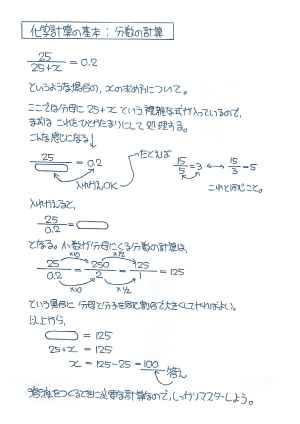 化学計算の基本：分数の計算
25/(25+x) = 0.2
というような場合の、xの求め方について。
ここでは分母に 25+x という複雑な式が入っているので、
まずは これをひとかたまりにして 処理する。
こんな感じになる↓
25/▭ = 0.2
入れかえOK
たとえば 15/5 = 3 ↔ 15/3 = 5
これと同じこと。
入れかえると、
25/0.2 = ▭
となる。小数が分母にくる分数の計算は、
×10 ×1/2
25/0.2 = 250/2 = 125/1 = 125
×10 ×1/2
という具合に 分母と分子を同じ割合で大きくしてやればよい。
以上から、
▭ = 125
25+x = 125
x = 125-25 = 100
答え
溶液をつくるときに必要な計算なので、しっかりマスターしよう。